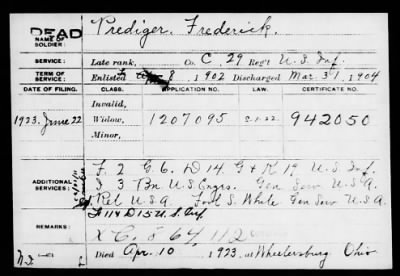 DEAD Prediger, Frederick.
NAME OF SOLDIER:
SERVICE: Late rank, Co. C, 29 Reg't U.S. Inf.
TERM OF SERVICE: Enlisted 8, 1902 Discharged Mar. 31, 1904
DATE OF FILING. CLASS. APPLICATION NO. LAW. CERTIFICATE NO.
Invalid,
1923, June 22 Widow, 1207095 942050
Minor,
ADDITIONAL SERVICES: F. 2 G. 6. D 14. G & K 19 U.S. Inf.
I 3 Bn U.S. Engrs. Gen Serv U.S.A.
Ret U.S.A. Fort S. Whale Gen Serv U.S.A.
F 114 D 15 U.S. Inf.
REMARKS: XC. 8 64, 112
Died Apr. 10, 1923, at Wheelersburg Ohio.